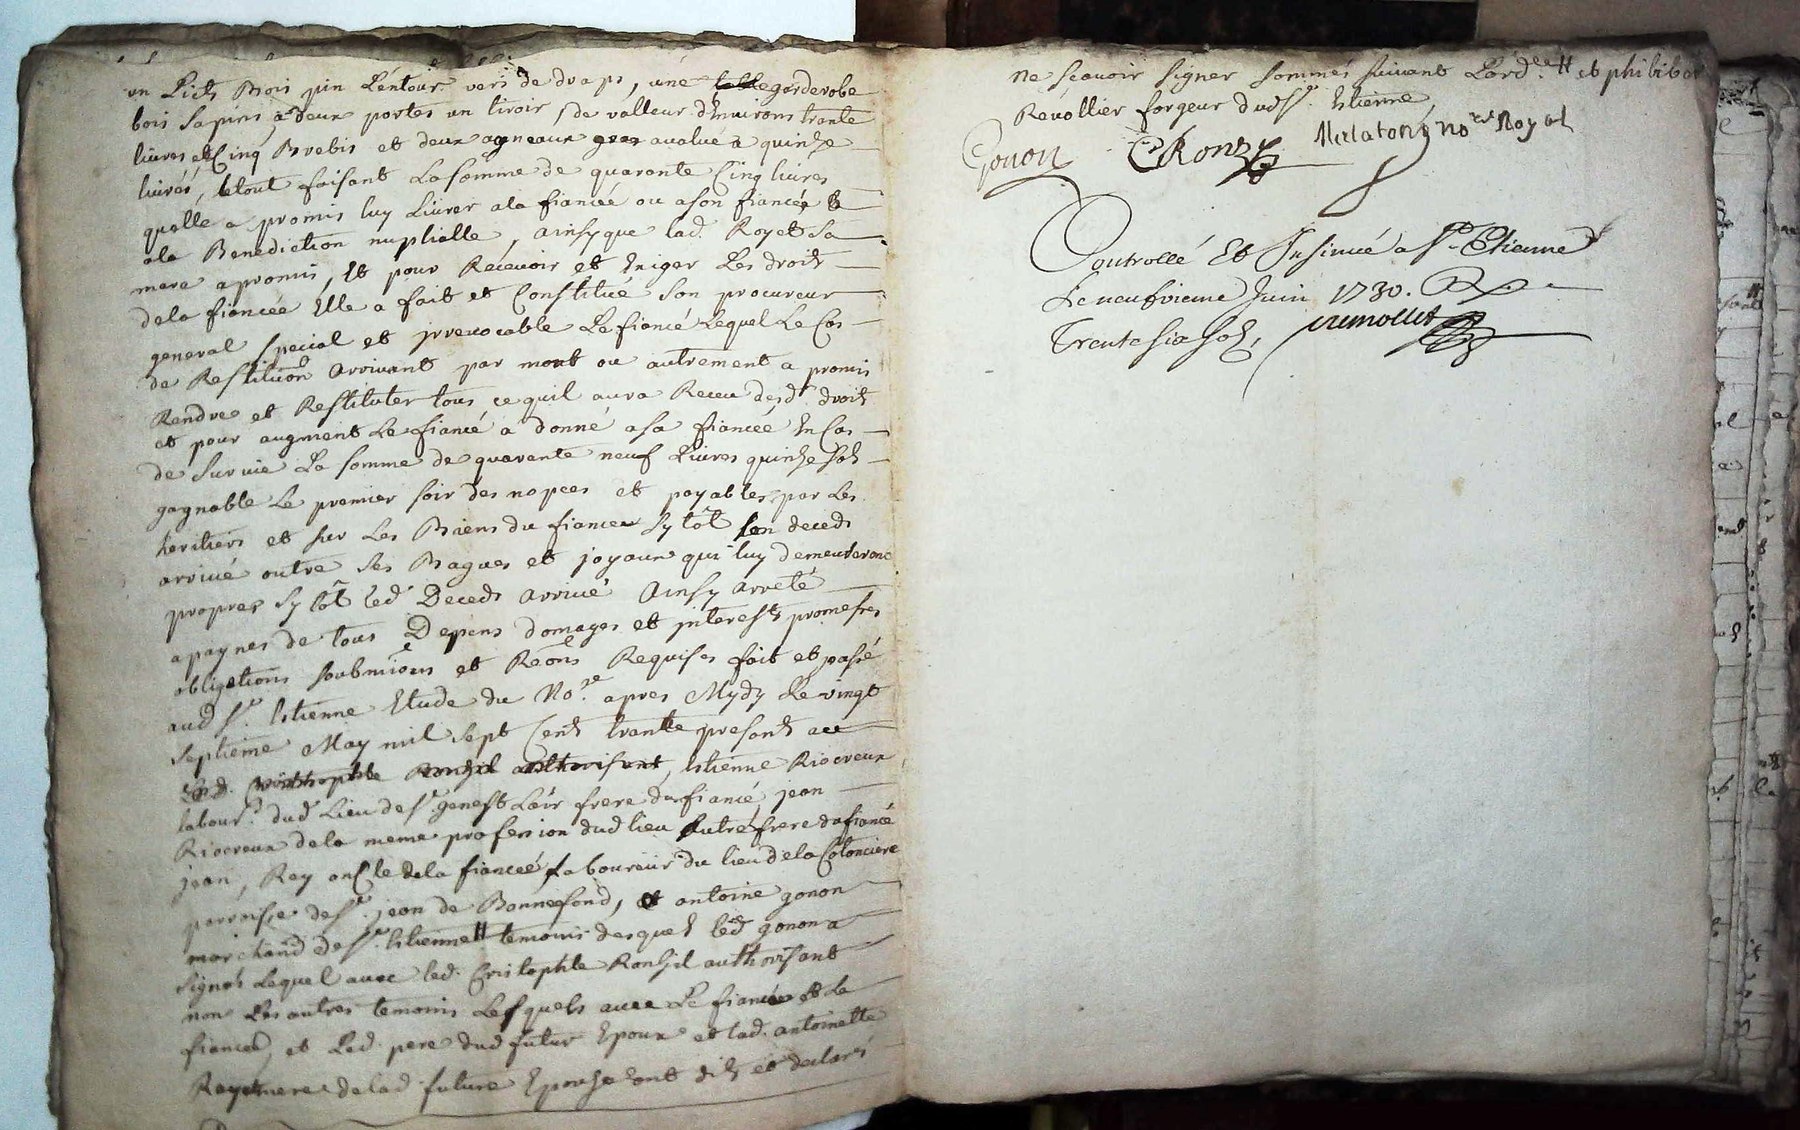 un Licts Bois pin L'entour vers de draps, une garderobe
bois sapins a deux portes un tiroir, de valleur d'Environs trante
livres et Cinq Brebis et deux agneaux avalué a quinze
livres, le tout faisant La somme de quarante Cinq livres
qu'elle a promis luy Livrer a la fiancée ou a son fiancée
a la Benediction nuptialle, ainsy que lad. Royet sa
mere a promis, et pour Recevoir et Exiger Les droits
de la fiancée Elle a fait et Constitué son procureur
general special et irrevocable Le fiancé Lequel Le Cas
de Restituon arrivant par mort ou autrement a promis
Rendre et Restituter tous ce quil aura Receu desd. droits
et pour augment Le fiancé a donné a sa fiancée En Cas
de survie La somme de quarante neuf Livres quinze sols
gagnable Le premier soir des nopces et payables par Les
heritiers et sur Les Biens du fiancer sy tôt son deceds
arrivé outre ses Bagues et joyaux qui luy demeureront
propres sy tôt led. Deceds arrivé Ainsy arreté
a paynes de tous Depens domages et interests promesses
obligations soubmions et Reons Requises fait et passé
aud St. Estienne Etude du Nore. apres Mydy Le vingt
septieme May mil sept Cents trantte presants
Estienne Riocreux
labour. dud. Lieu de St. genest Lair frere du fiancé, jean
Riocreux de la meme profession dud lieu Autre frere du fiancé
jean, Rey oncle de la fiancée, Laboureur du lieu de la Colonciere
parroisse de St. jean de Bonnefond, et antoine gonon
marchand de St. Estienne temoins desquels led. gonon a
signés Lequel avec led. Cristophle Ronzil authorisant
non Les autres temoins Lesquels avec Le fiancée et la
fiancée, et Led. pere dud futur Epoux et lad. antoinette
Royet mere de lad. future Epouze ont dits et declarés
ne sçavoir signer sommés suivant L'ord.ce et phibibert
Revollier forgeur dud St. Estienne
Gonon CRonzy no.re Royal
Controllé Et Insinué a St. Etienne
Le neufvieme Juin 1730. R
Trente six sols,